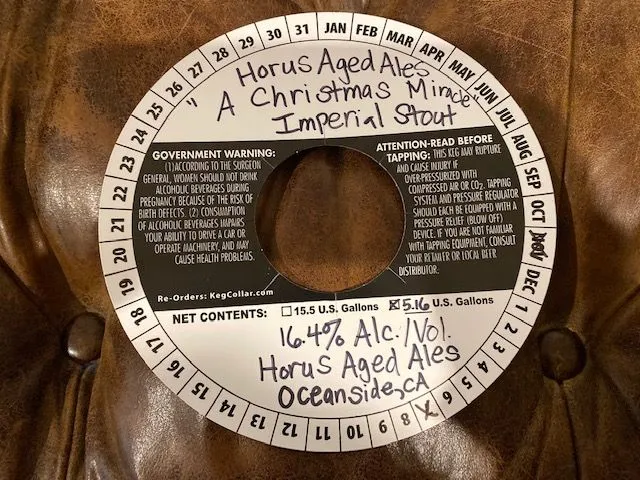 JAN FEB MAR APR MAY JUN JUL AUG SEP OCT NOV DEC 1 2 3 4 5 6 8 9 10 11 12 13 14 15 16 17 18 19 20 21 22 23 24 25 26 27 28 29 30 31
Horus Aged Ales
"A Christmas Miracle"
Imperial Stout
GOVERNMENT WARNING:
(1) ACCORDING TO THE SURGEON
GENERAL, WOMEN SHOULD NOT DRINK
ALCOHOLIC BEVERAGES DURING
PREGNANCY BECAUSE OF THE RISK OF
BIRTH DEFECTS. (2) CONSUMPTION
OF ALCOHOLIC BEVERAGES IMPAIRS
YOUR ABILITY TO DRIVE A CAR OR
OPERATE MACHINERY, AND MAY
CAUSE HEALTH PROBLEMS.
Re-Orders: KegCollar.com
ATTENTION-READ BEFORE
TAPPING: THIS KEG MAY RUPTURE
AND CAUSE INJURY IF
OVER-PRESSURIZED WITH
COMPRESSED AIR OR CO2. TAPPING
SYSTEM AND PRESSURE REGULATOR
SHOULD EACH BE EQUIPPED WITH A
PRESSURE RELIEF (BLOW OFF)
DEVICE. IF YOU ARE NOT FAMILIAR
WITH TAPPING EQUIPMENT, CONSULT
YOUR RETAILER OR LOCAL BEER
DISTRIBUTOR.
NET CONTENTS: 15.5 U.S. Gallons 5.16 U.S. Gallons
16.4% Alc./Vol.
Horus Aged Ales
Oceanside, CA